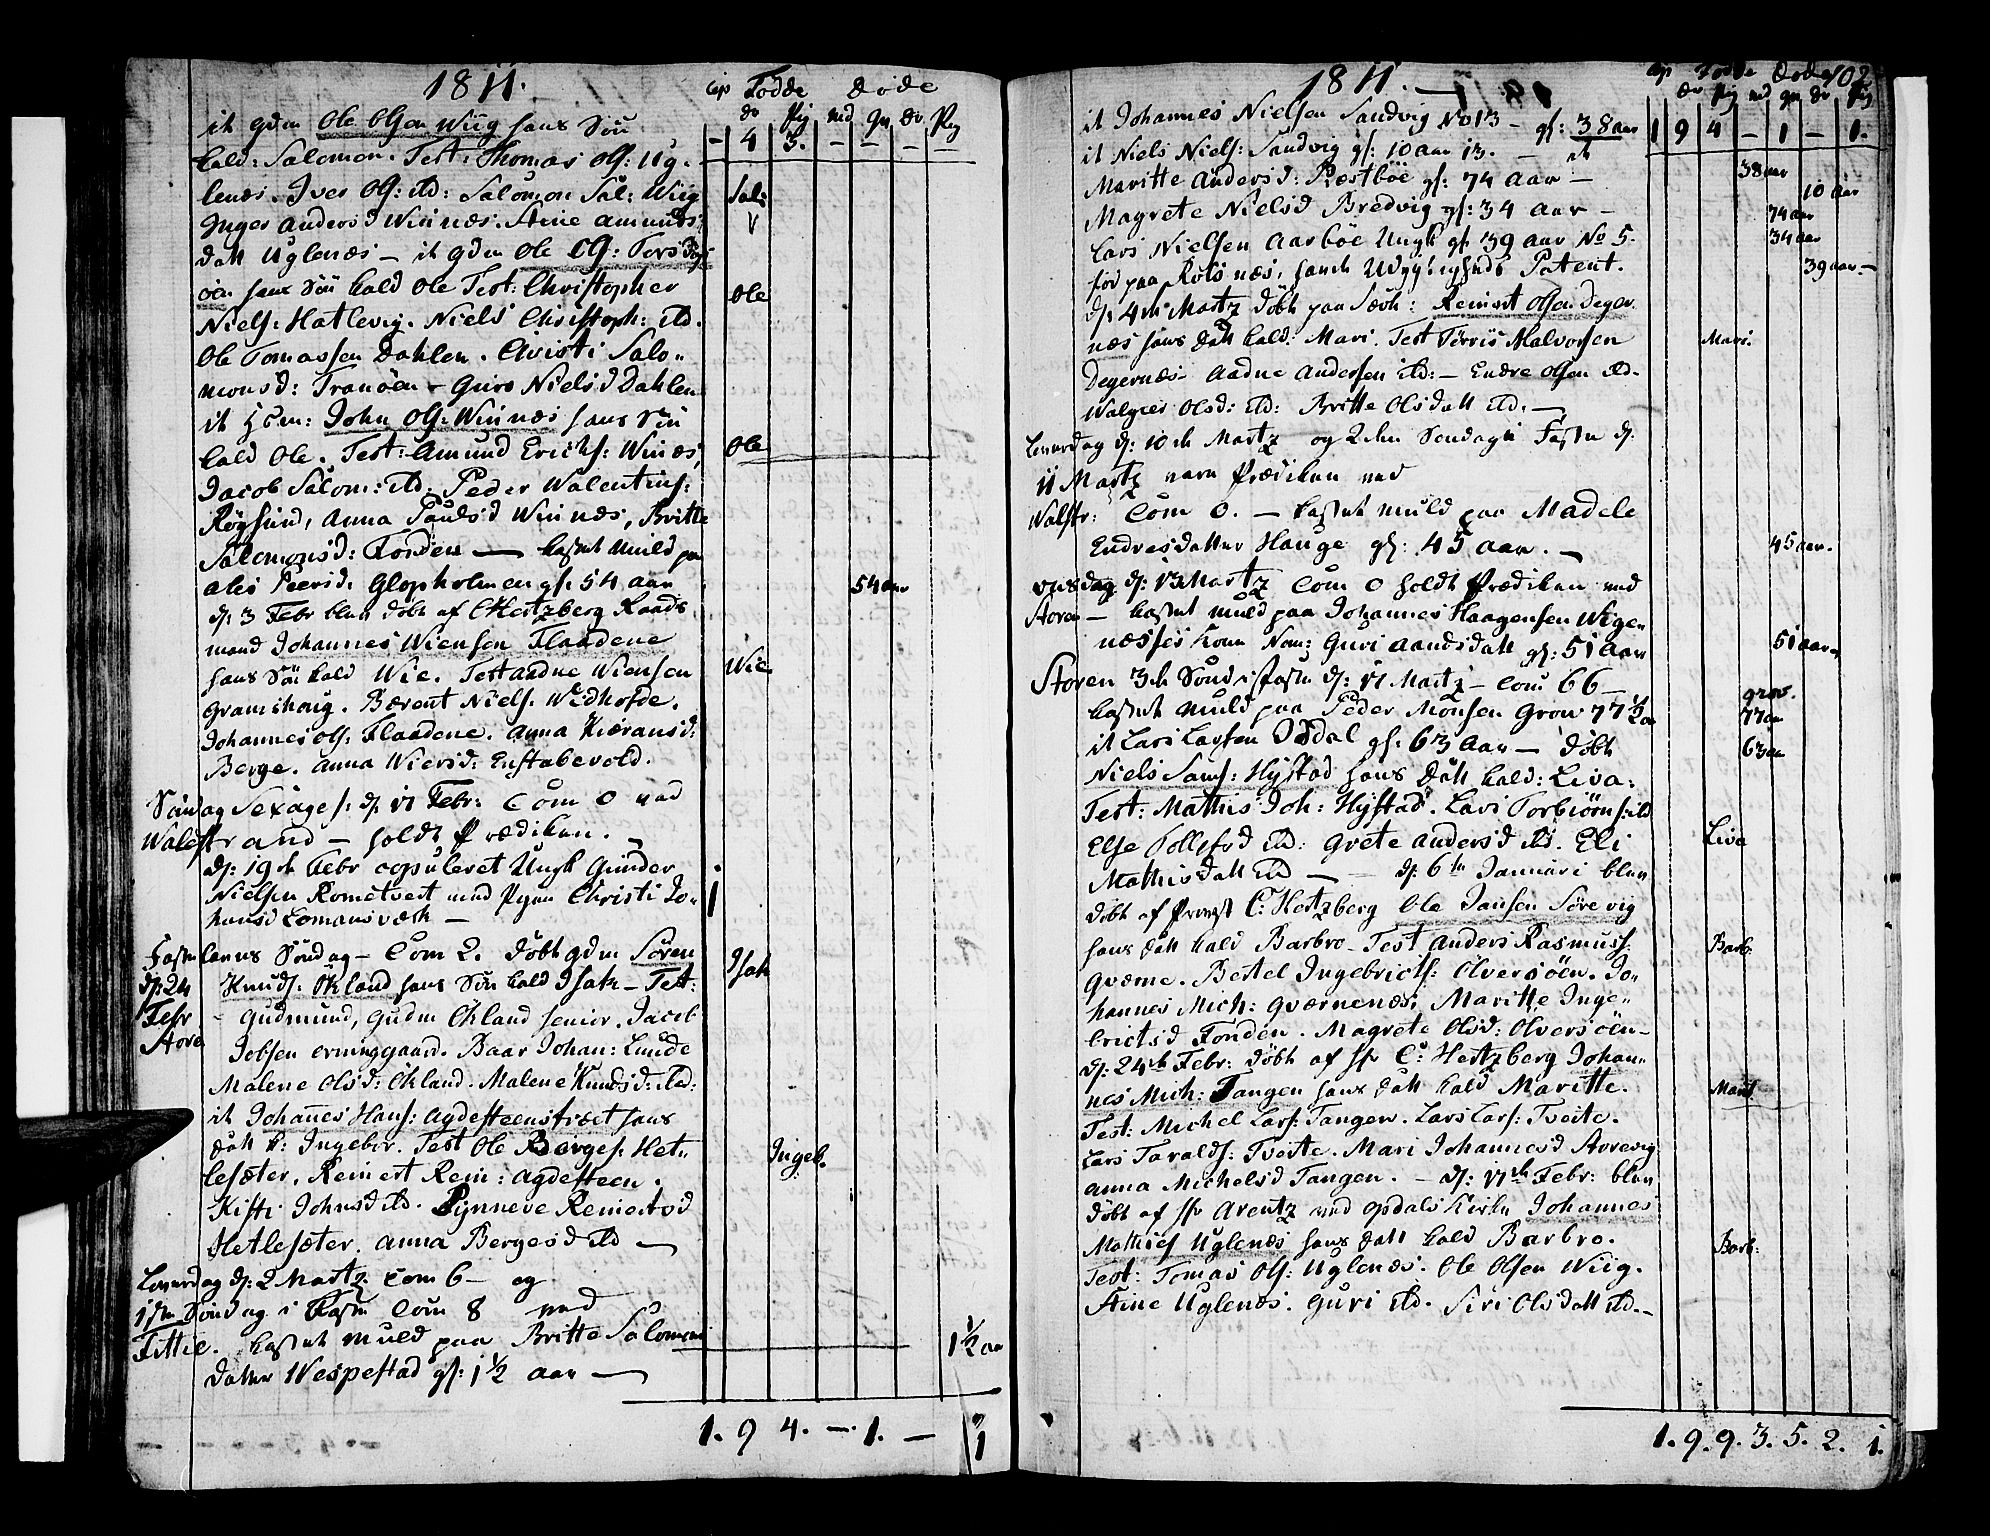 1811.
Cop Fødde Døde
dr Pig md qu dr Pig
it gdm Ole Olsen Wiig hans Søn
- 4 3. - - -
kald: Salomon. Test: Thomas Ols: Ug-
lenæs. Iver Ols: ibd: Salomon Sal: Wiig
Sal:
Inger Andersd Winnæs. Stine Amunds-
datt Uglenæs - it gdm Ole Ols: Torsdag-
øen hans Søn kald Ole Test: Christopher
Ole
Niels: Hatlevig. Niels Christoph: ibd.
Ole Tomassen Dahlen. Christi Salo-
monsd: Tranøen - Guro Nielsd Dahlen
it Hsm: John Ols: Winnæs hans Søn
kald Ole. Test: Amund Erichs: Winæs,
Ole
Jacob Salom: ibd. Peder Walentins:
Røgsund, Anna Paulsd Winnæs, Britte
Salomonsd: Fonden — kastet Muld paa
Alis Peersd. Glopholmen gl: 54 aar
54 aar
d: 3 Febr blev døbt af C Hertzberg Raads
mand Johannes Wiensen Flaadene
hans Søn kald Wie. Test Aadne Wiensen
Wie
Gramshoug. Bærent Niels. Wedhofde.
Johannes Ols: Flaadene. Anna Kiæransd:
Berge. Anna Wiersd: Enstabevold.
Søndag Sexages: d: 17 Febr: Com 0 ved
Walestrand - holdt Prædiken.
d: 19de Febr copuleret Ungk Gunder
Nielsen Rometvedt med Pigen Christi Jo-
1
hansd Lomansvæth -
Fastelavns Søndag - Com 2. døbt gdm Søren
d: 24 Knuds: Økland hans Søn kald Isak - Test:
Isak
Febr Gudmund, Gudm Økland senior. Jacob
Støre Jobsen Ervinggaard. Baar Johan: Lunde
Malene Olsd: Økland. Malene Knudsd: ibd:
it Johannes Hans: Agdesteenstræet hans
datt k: Ingebr. Test Ole Berges: Het-
Ingeb.
lesæter. Reinert Rein: Agdesteen.
Kisti Johnsd ibd. Synneve Reinertsd
Hetlesæter. Anna Bergesd ibd —
Løverdag d: 2 Martz. Com 6 - og
1ste Søndag i Faste Com 8 ved
Fittie. kastet Muld paa Britte Salomons
datter Wespestad gl: 1½ aar —
1½ aar
1. 9 4. - 1. - 1
1811.
102
Cop Fødde Døde
dr Pig md qu dr Pig
it Johannes Nielsen Sandvig No 13 - gl: 38 aar
1 9 4 - 1 - 1.
it Niels Niels: Sandvig gl: 10 aar 13. - it
38 aar
Maritte Andersd: Præstbøe gl: 74 aar -
10 aar
Magrete Nielsd Bredvig gl: 34 aar -
74 aar
Lars Nielsen Aarbøe Ungk gl: 39 aar No 5.
34 aar
for paa Rolsnæs,
39 aar -
Patent.
d: 4de Martz døbt paa Sævh: Reinert Olsen Deger
næs hans datt kald: Mari. Test Tørris Halvorsen
Mari.
Degernæs Aadne Andersen ibd: - Endre Olsen ibd.
Walgier Olsd: ibd: Britte Olsdatt ibd. -
Løverdag d: 10de Martz og 2den Søndag i Faste d:
11 Martz være Prædiken ved
Walstr: Com 0. - kastet Muld paa Madele
Endresdatter Hauge gl: 45 aar. -
45 aar.
Onsdag d: 13 Martz Com 0 holdt Prædiken ved
Støren - kastet Muld paa Johannes Haagensen Wige
næsses Kone Nom: Guri Aandsdatt gl: 51 Aar
51 aar
Støren 3de Sønd i Faste d: 17 Martz - Com 66 -
kastet Muld paa Peder Monsen Grow 77½ aar
grov.
77 aar
it Lars Larsen Opdal gl: 63 Aar - døbt
63 aar
Niels Sams: Hystad hans datt kald: Liva:
Test: Mathis Joh: Hystad. Lars Torbiørns: ibd
Else Tollefsd ibd: Grete Andersd ibd. Eli
Liva
Mathisdatt ibd — d: 6te Januari blev
døbt af Provst C: Hertzberg Ole Jansen Sørevig
hans datt kald Barbro - Test Anders Rasmuss.
Barb:
Qværne. Bertel Ingebricts: Ølversøen. Jo-
hannes Mich: Qværnenæs, Maritte Inge-
brictsd Fonden. Magrete Olsd: Ølversøen -
d: 24de Febr: døbt af Hr C: Hertzberg Johan-
nes Mich: Tangen hans datt kald Maritte.
Marit
Test: Michel Lars: Tangen. Lars Lars: Tveite.
Lars Taralds: Tveite. Mari Johannesd Aarevig
Anna Michelsd Tangen. - d: 17de Febr: blev
døbt af Hr Arentz ved Opdals Kirke Johannes
Mathies Uglenæs hans datt kald Barbro.
Barb:
Test: Tomas Ols: Uglenæs. Ole Olsen Wiig.
Stine Uglenæs. Guri ibd. Siri Olsdatt ibd. -
1. 9. 9. 3. 5. 2. 1.